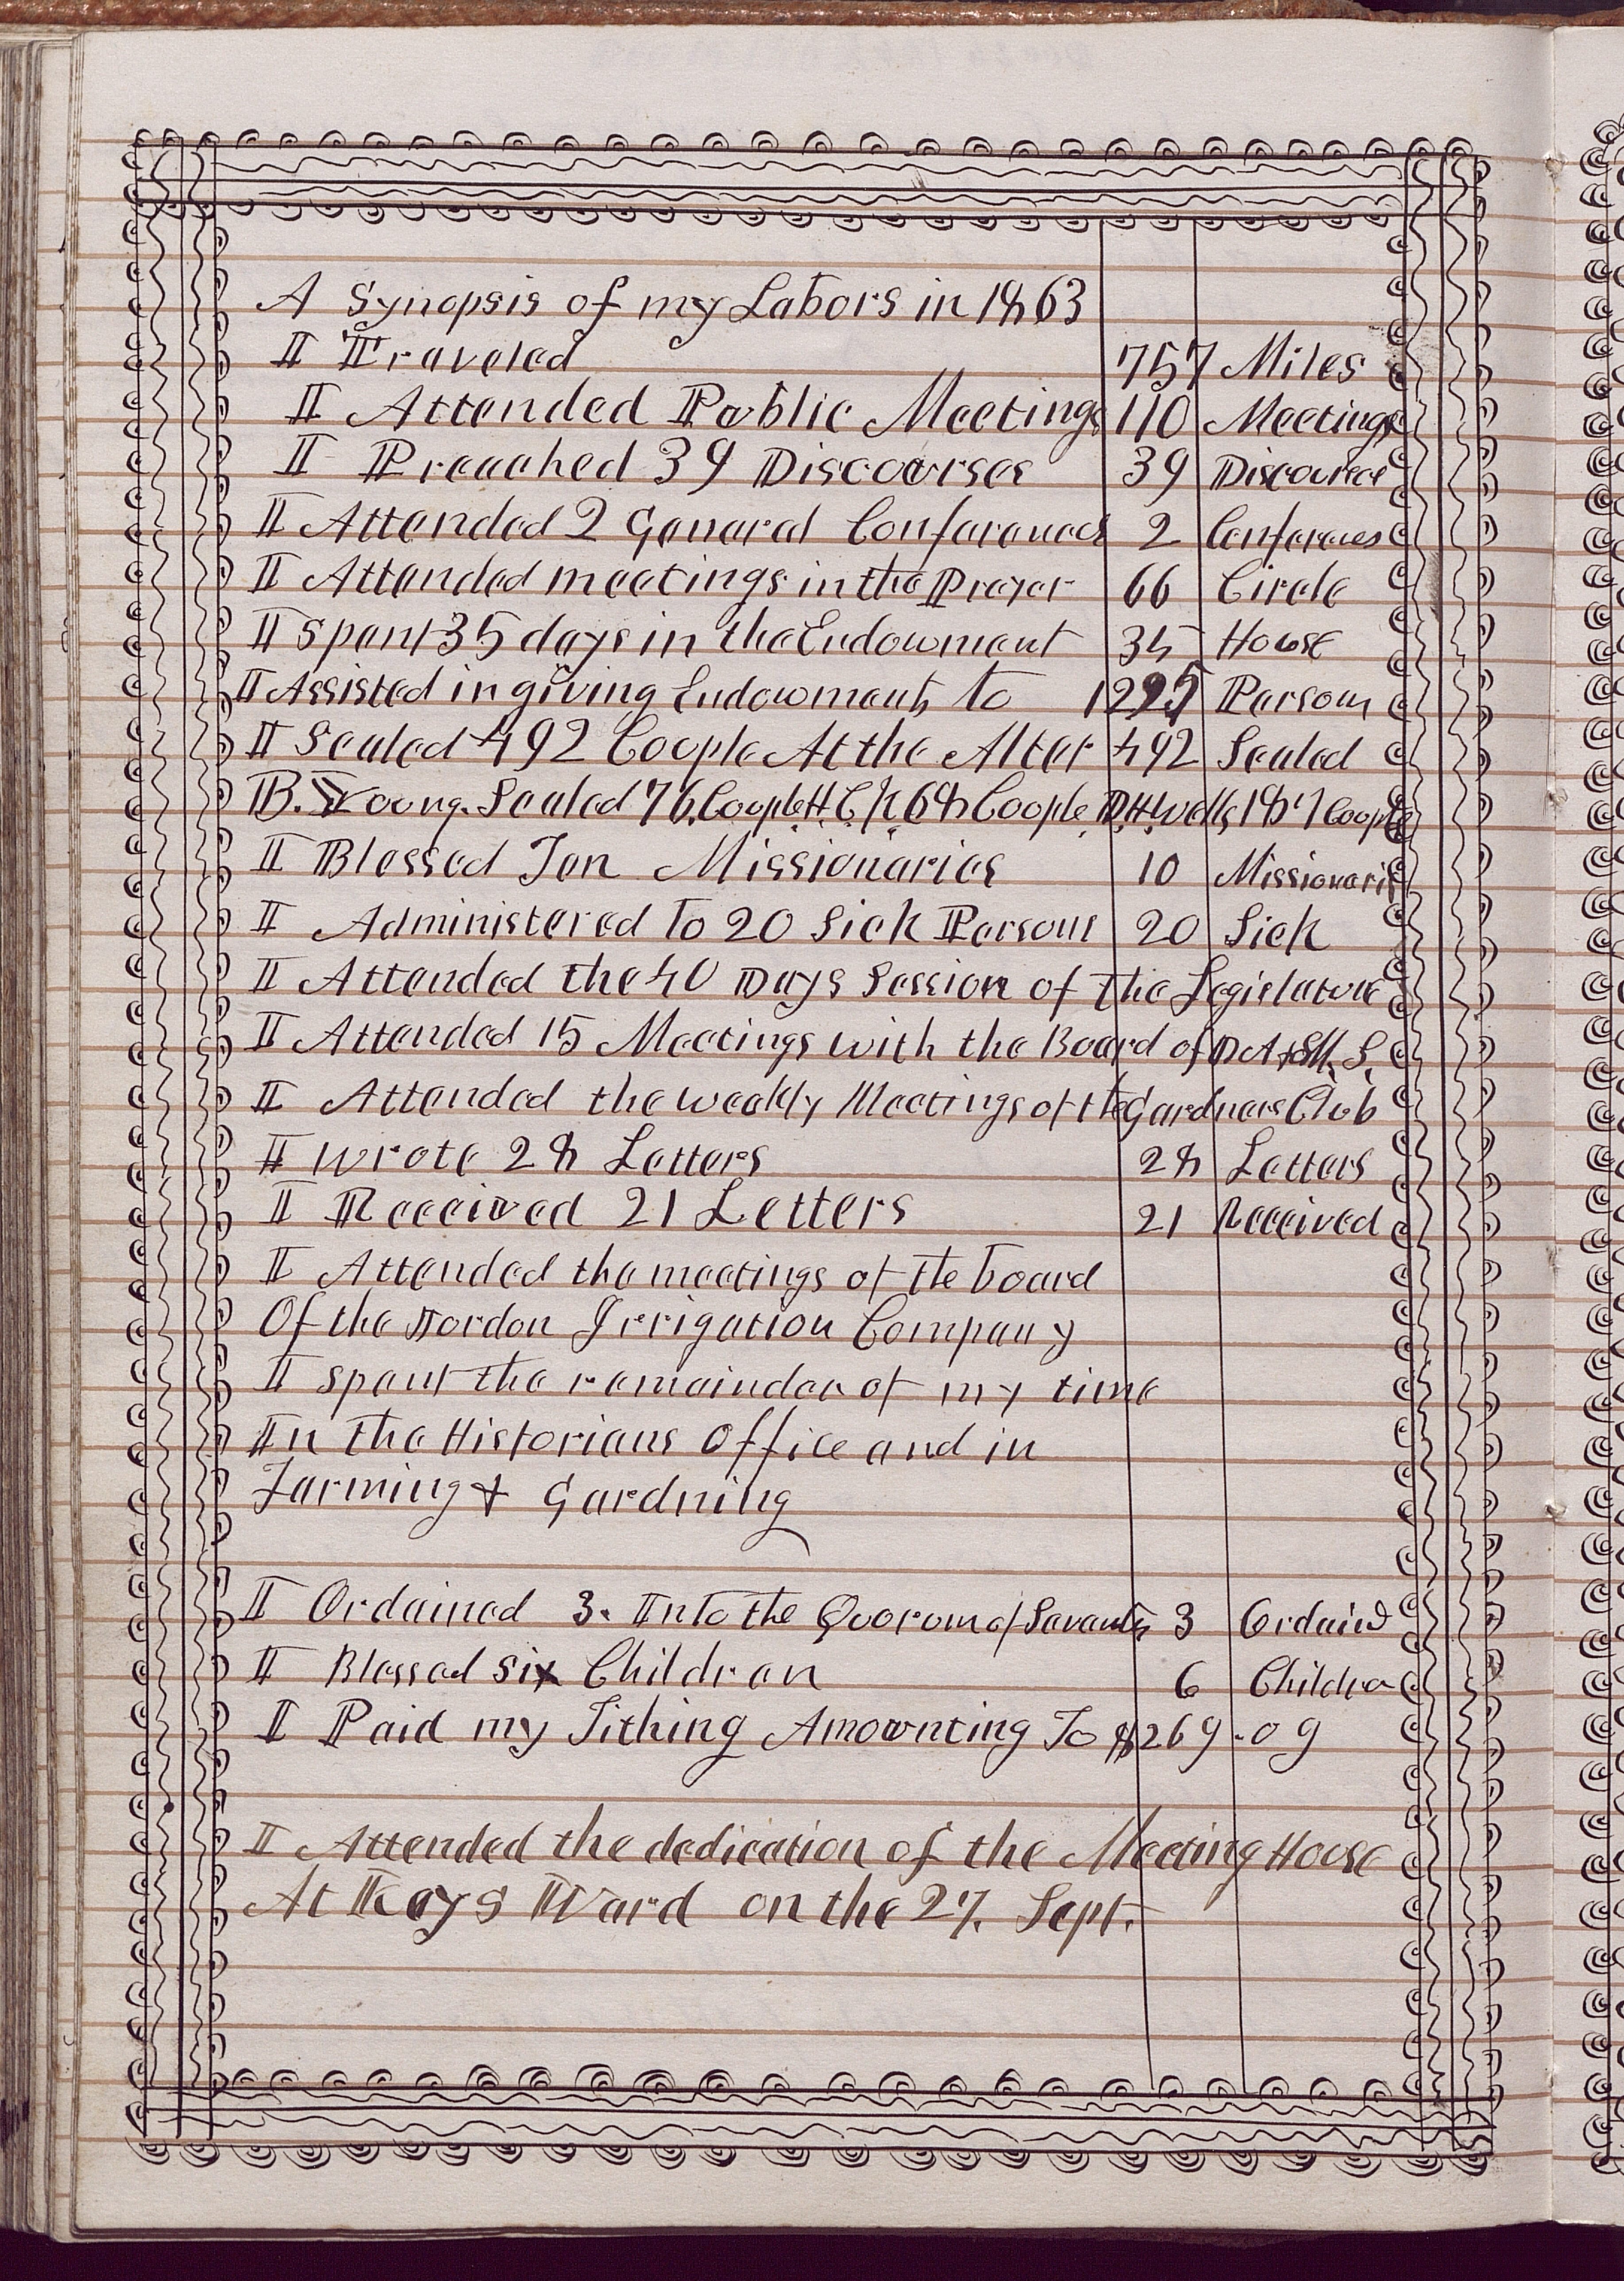 A Synopsis of my Labors in 1863
I Traveled 757 Miles
I Attended Public Meetings 110 Meetings
I Preached 39 Discourses 39 Discources
I Attended 2 General Conferences 2 Conferences
I Attended meetings in the Prayer 66 Circle
I spent 35 days in the Endowment 35 House
I Assisted in giving Endowments to 1295 Persons
I Sealed 492 Couple At the Alter 492 Sealed
B. Young. Sealed 76 Couple H. C. K 68 Couple D. H. Wells 187 Couple
I Blessed Ten Missionaries 10 Missionaries
I Administered to 20 Sick Persons 20 Sick
I Attended the 40 Days Session of the Legislature
I Attended 15 Meetings with the Board of D A & M. S.
I Attended the weekly Meetings of the Gardners Club
I wrote 28 Letters 28 Letters
I Received 21 Letters 21 Received
I Attended the meetings of the board
Of the Jordon Irrigation Company
I spent the remainder of my time
In the Historians Office and in
Farming & Gardning
I Ordained 3. Into the Quorum of Seventies 3 Ordaind
I Blessed six Children 6 Children
I Paid my Tithing Amounting To $269.09
I Attended the dedication of the Meeting House
At Kays Ward on the 27. Sept.